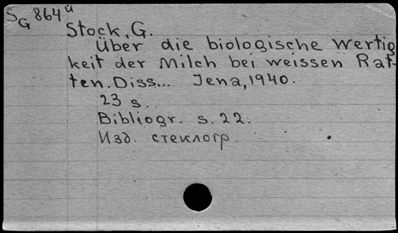 S G 864 ü
Stock, G.
Über die biologische Wertig-
keit der Milch bei weissen Rat-
ten. Diss... Jena, 1940.
23 s.
Bibliogr. s. 22.
Изд. стеклогр.